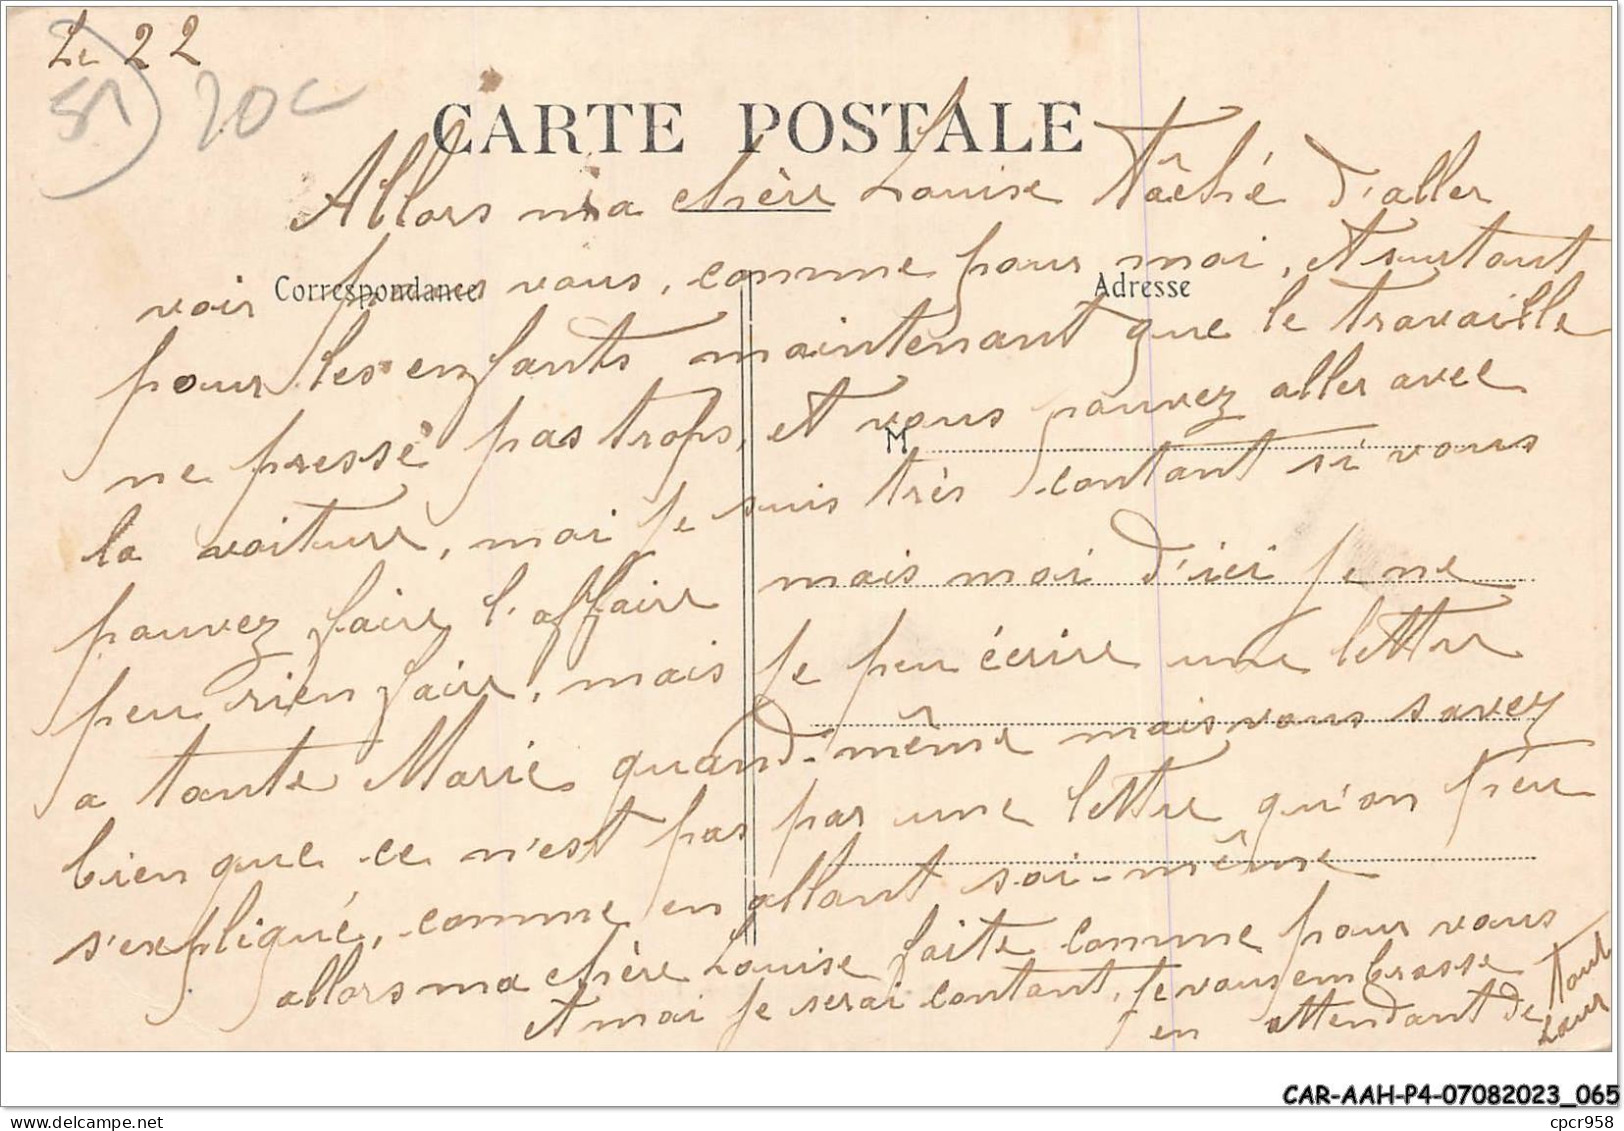 Le 22
51 20c
CARTE POSTALE
Allors ma chère Louise tâché d'aller
voir pour vous, comme pour moi, et surtout
Correspondance
Adresse
pour les enfants maintenant que le travaille
ne pressé pas trops, et vous pouvez aller avec
M
la voiture, moi je suis très contant si vous
pouvez faire l'affaire mais moi d'ici je ne
peu rien faire, mais je peu écrire une lettre
a tante Marie quand-même mais vous savez
bien que ce n'est pas par une lettre qu'on peu
s'expliqué, comme en allant soi-même
allors ma chère Louise faite comme pour vous
et moi je serai contant, je vous embrasse tout
en attendant de
CAR-AAH-P4-07082023_065
cpcr958